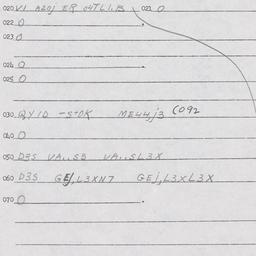 020 VI A20j ER 04TLI.B 021 0
022 0
023 0
024 0
025 0
030 QYID -STOK ME44,j3 C092
040 0
050 D3S VA..SB VA..SL3X
060 D3S GEj,L3XN7 GEj,L3XL3X
070 0